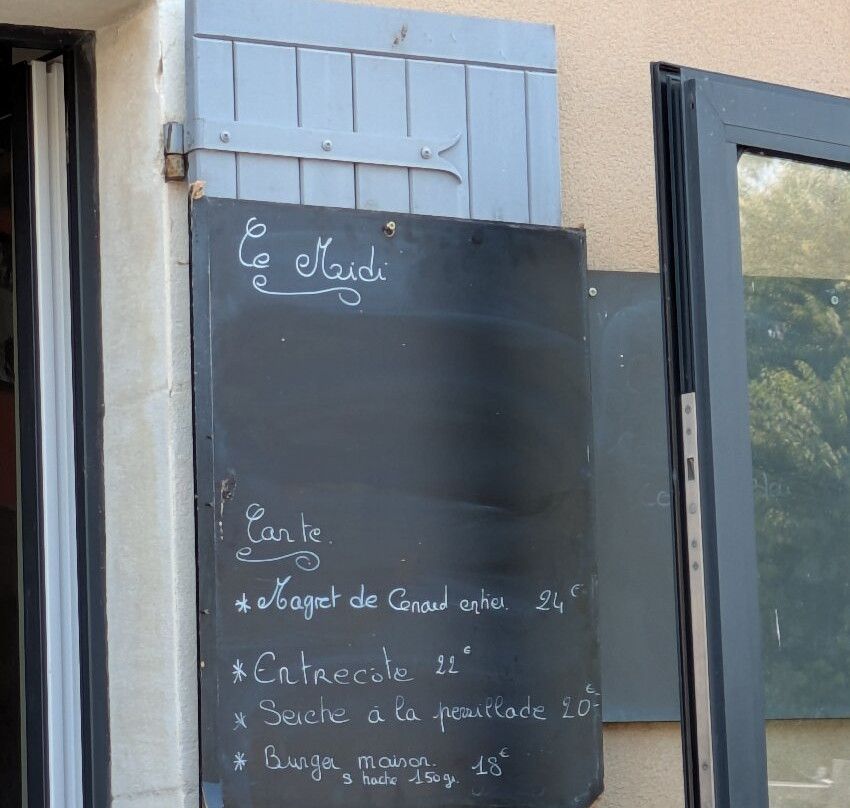 Ce Midi
Carte.
* Magret de Canard entier. 24€
* Entrecôte 22€
* Seiche à la persillade 20€
* Burger maison. 18€
s haché 150gr.